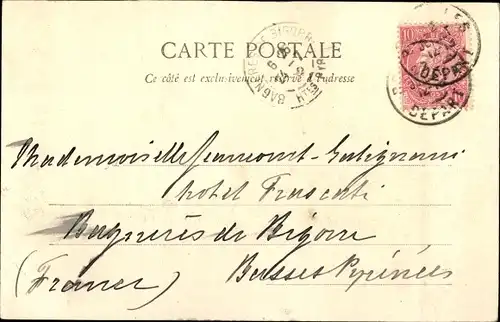 CARTE POSTALE
Ce côté est exclusivement réservé à l'adresse
BAGNERES DE BIGORRE
Htes PYR
10
DEPART
DEPART
Mademoiselle Jeancourt-Galignani
hotel Frascati
Bagnères de Bigorre
(France) Basses Pyrénées